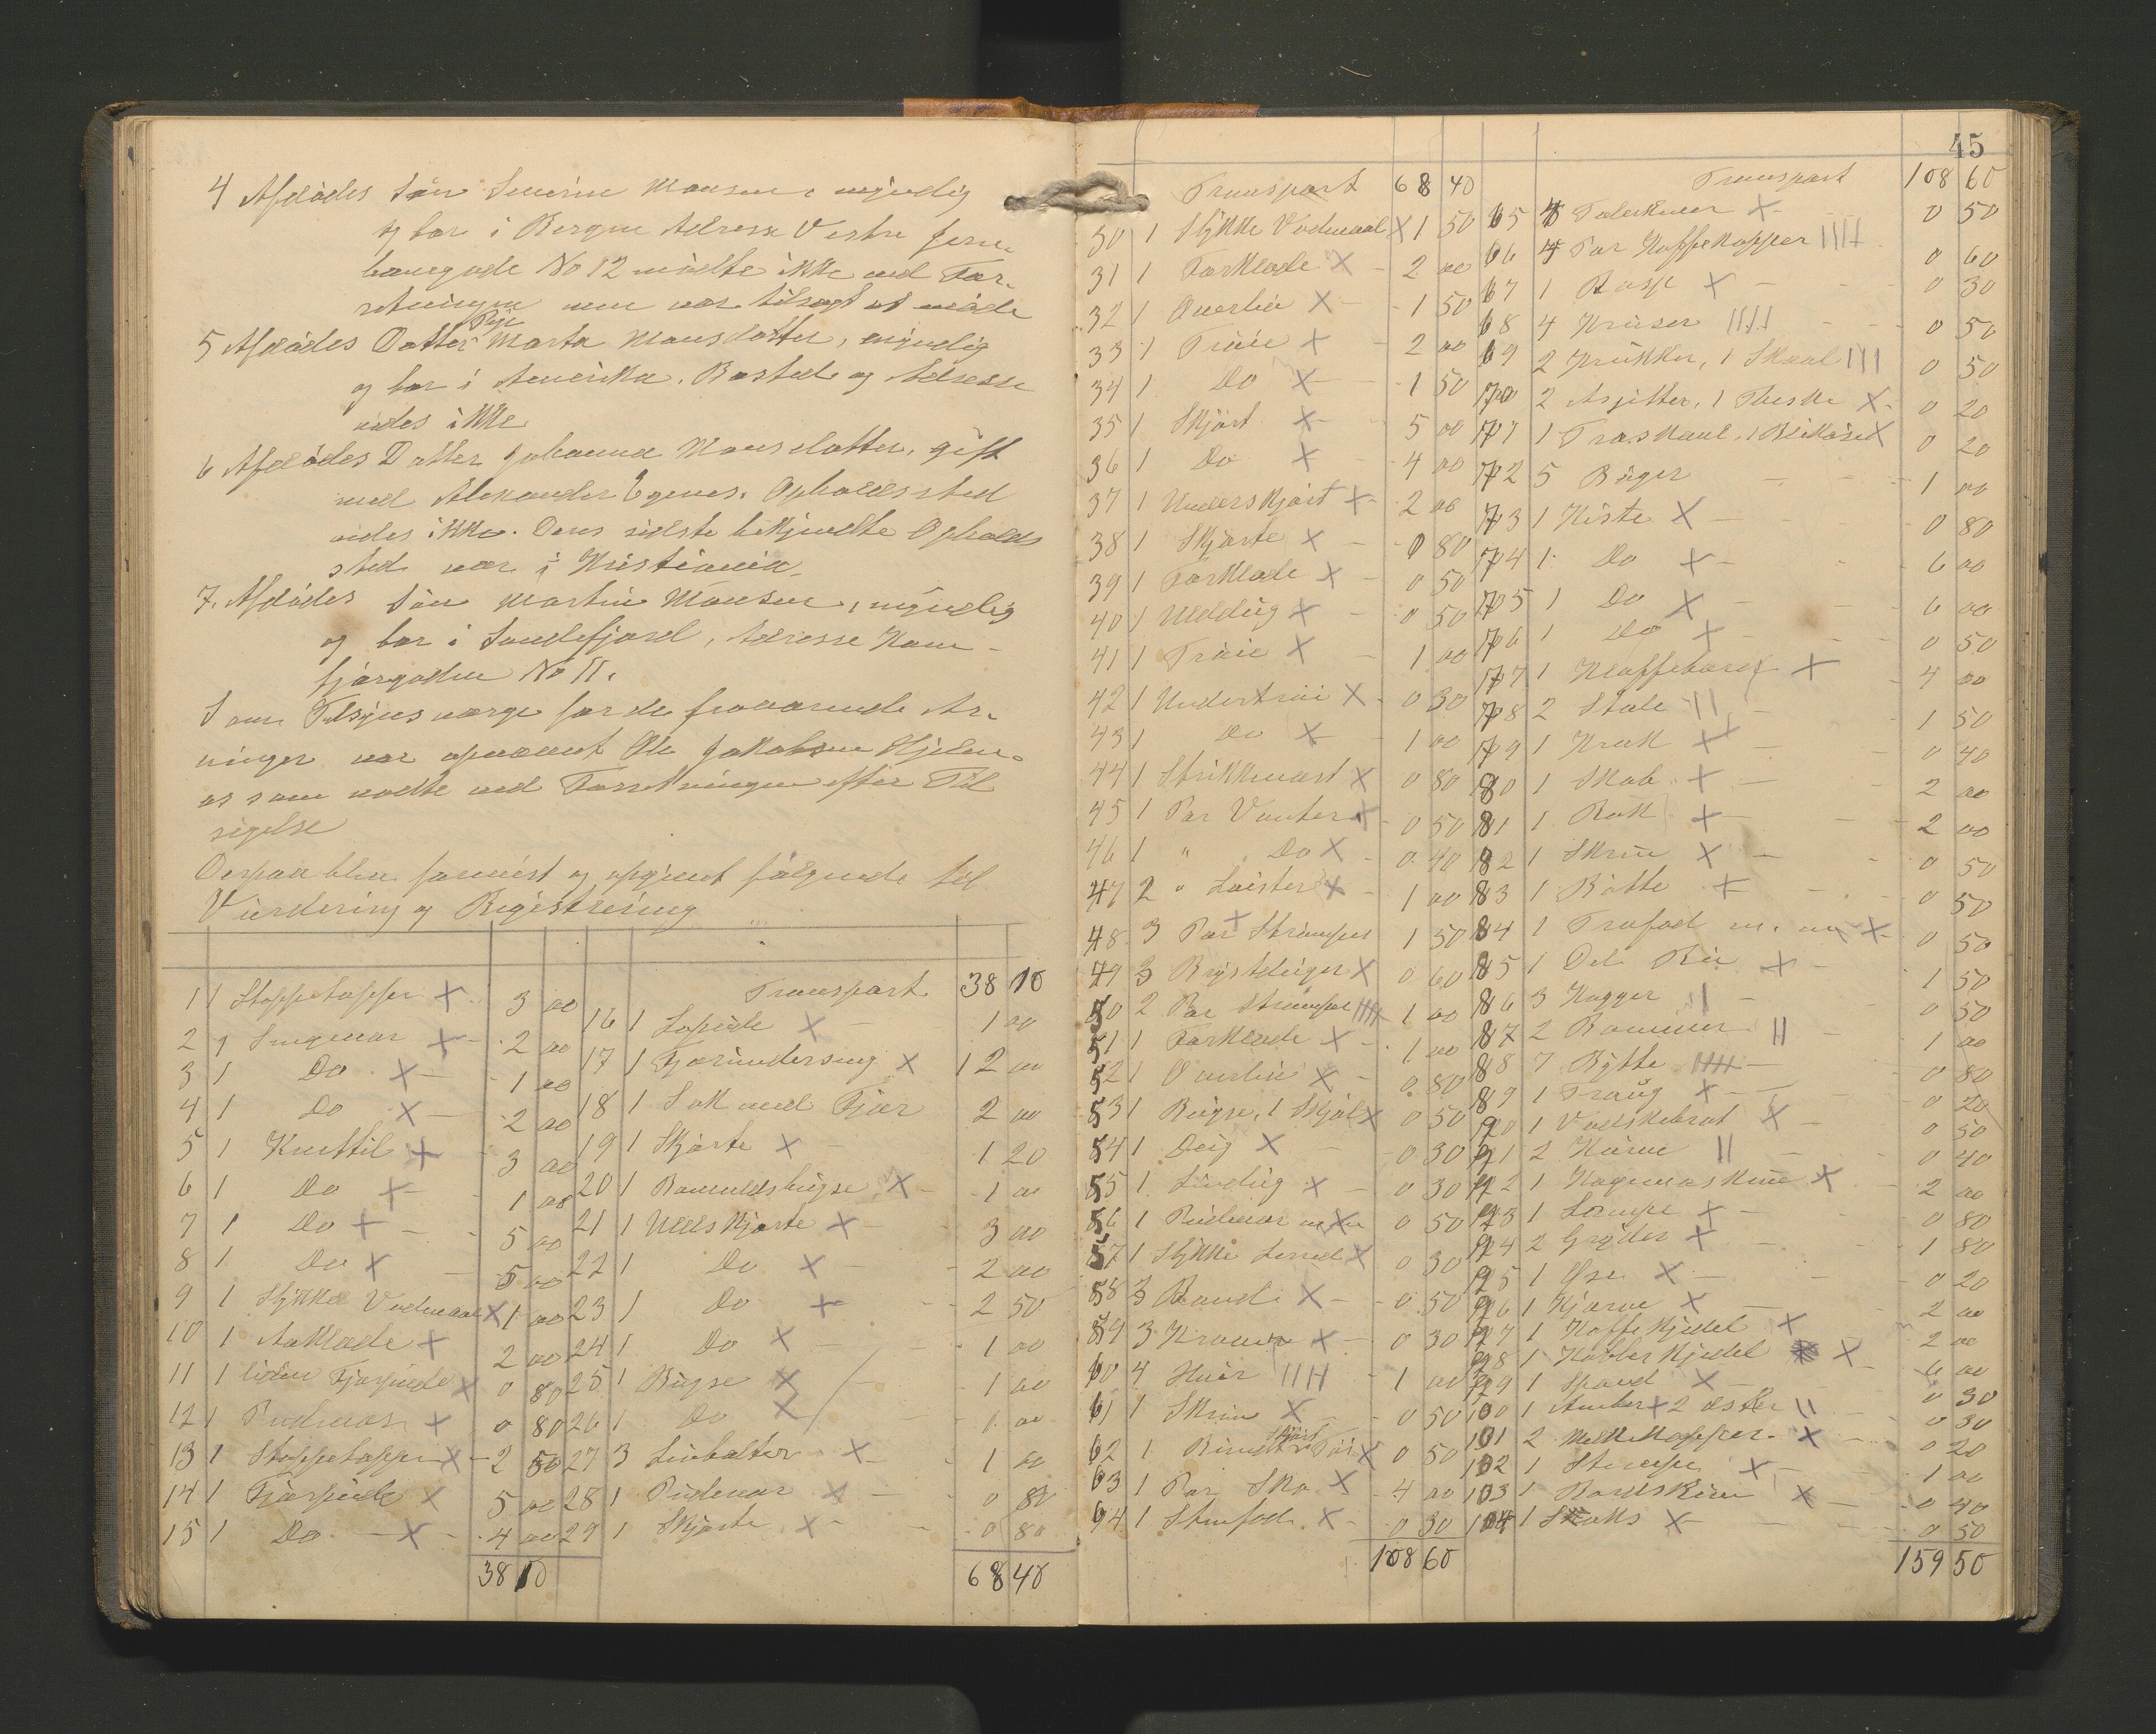 4 Afdødes Søn Severin Monsen, myndig
og bor i Bergen Adresse Vestre Jern-
banegade No 12 mødte ikke ved For-
retningen men var tilsagt at møde
5 Afdødes Datter Pige Marta Monsdatter, myndig
og bor i Amerika. Bosted og Adresse
vides ikke
6 Afdødes Datter Johanna Monsdatter, gift
med Alexander Egenes. Opholdssted
vides ikke. Deres sidste bekjendte Opholds
sted var i Kristiania.
7. Afdødes Søn Martin Monsen, myndig
og bor i Sandefjord, Adresse
No 11.
Som Tilsynsværge for de fraværende Ar-
vinger var opnævnt Ole Jakobsen
as som mødte ved Forretningen efter Til
sigelse
Derpaa blev forevist og opgivet følgende til
Vurdering og Registrering
1 1 Stoppetæppe X 3 00
2 1 Sengevær X 2 00
3 1 Do X 1 00
4 1 Do X 2 00
5 1 Kvittil X 3 00
6 1 Do X 1 00
7 1 Do X 5 00
8 1 Do X 5 00
9 1 Stykke Vadmaal X 1 00
10 1 Aaklæde X 2 00
11 1 liden Fjærpude X 0 80
12 1 Pudevar X 0 80
13 1 Stoppetæppe X 2 50
14 1 Fjærpude X 5 00
15 1 Do X 4 00
38 10
Transport 38 10
16 1 Lopude X 1 00
17 1 Fjærunderseng X 12 00
18 1 Sæk med Fjær 2 00
19 1 Skjorte X 1 20
20 1 Bomuldsbugse X 1 00
21 1 Uldskjorte X 3 00
22 1 Do X 2 00
23 1 Do X 2 50
24 1 Do X 1 00
25 1 Bugse X 1 00
26 1 Do X 1 00
27 3 X 1 00
28 1 Pudevar X 0 80
29 1 Skjorte X 0 80
68 40
45
Transport 68 40
30 1 Stykke Vadmaal X 1 50
31 1 Forklæde X 2 00
32 1 Overliv X 1 50
33 1 Trøie X 2 00
34 1 Do X 1 50
35 1 Skjørt X 5 00
36 1 Do X 4 00
37 1 Underskjørt X 2 00
38 1 Skjorte X 0 80
39 1 Forklæde X 0 50
40 1 Uldtug X 0 50
41 1 Trøie X 1 00
42 1 Undertrøie X 0 30
43 1 Do X 1 00
44 1 Strikkevest X 0 80
45 1 Par Vanter X 0 50
46 1 " Do X 0 40
47 2 " Leister X 1 00
48 3 Par X Strømper 1 50
49 3 Brystduger X 0 60
50 2 Par Strømper 1 00
51 1 Forklæde X 1 00
52 1 Overliv X 0 80
53 1 Bugse, 1 Skjøl X 0 50
54 1 Deig X 0 30
55 1 Lindug X 0 30
56 1 Pudevar m m X 0 50
57 1 Stykke Lerred X 0 30
58 3 Baand X 0 50
59 3 Kraver X 0 30
60 4 Huer IIII 1 00
61 1 Skrin X 0 50
62 1 X 0 50
63 1 Par Sko X 4 00
64 1 Stenfad X 0 30
108 60
Transport 108 60
65 4 Talerkener X 0 50
66 4 Par Kaffekopper IIII 0 60
67 1 Bøsse X 0 30
68 4 Kruser IIII 0 50
69 2 Krukker, 1 Skaal III 0 50
70 2 Asjetter, 1 Theske X 0 20
71 1 Træskaal, 1 X 0 20
72 5 Bøger 1 00
73 1 Kiste X 0 80
74 1 Do X 6 00
75 1 Do X 6 00
76 1 Do X 0 50
77 1 Klaffebord X 4 00
78 2 Stole II 1 50
79 1 Krak X 0 40
80 1 Skab X 2 00
81 1 Rok X 2 00
82 1 Skrin X 0 50
83 1 Bøtte X 0 50
84 1 Træfad m. m. X 0 50
85 1 Del X 1 50
86 3 Kagger I 0 50
87 2 Rammer II 1 00
88 7 Bytte 0 80
89 1 Traug X 0 20
90 1 Vadskebræt X 0 50
91 2 Kurve II 0 40
92 1 X 2 00
93 1 Lampe X 0 80
94 2 Gryder X 1 80
95 1 Øse X 0 20
96 1 Kjærne X 2 00
97 1 Kaffekjedel X 2 00
98 1 Kobberkjedel X 6 00
99 1 Spand X 0 30
100 1 Amber X 2 Æsker II 0 30
101 2 Melkekopper X 0 20
102 1 Stampe X 1 00
103 1 X 0 40
104 1 X 0 50
159 50